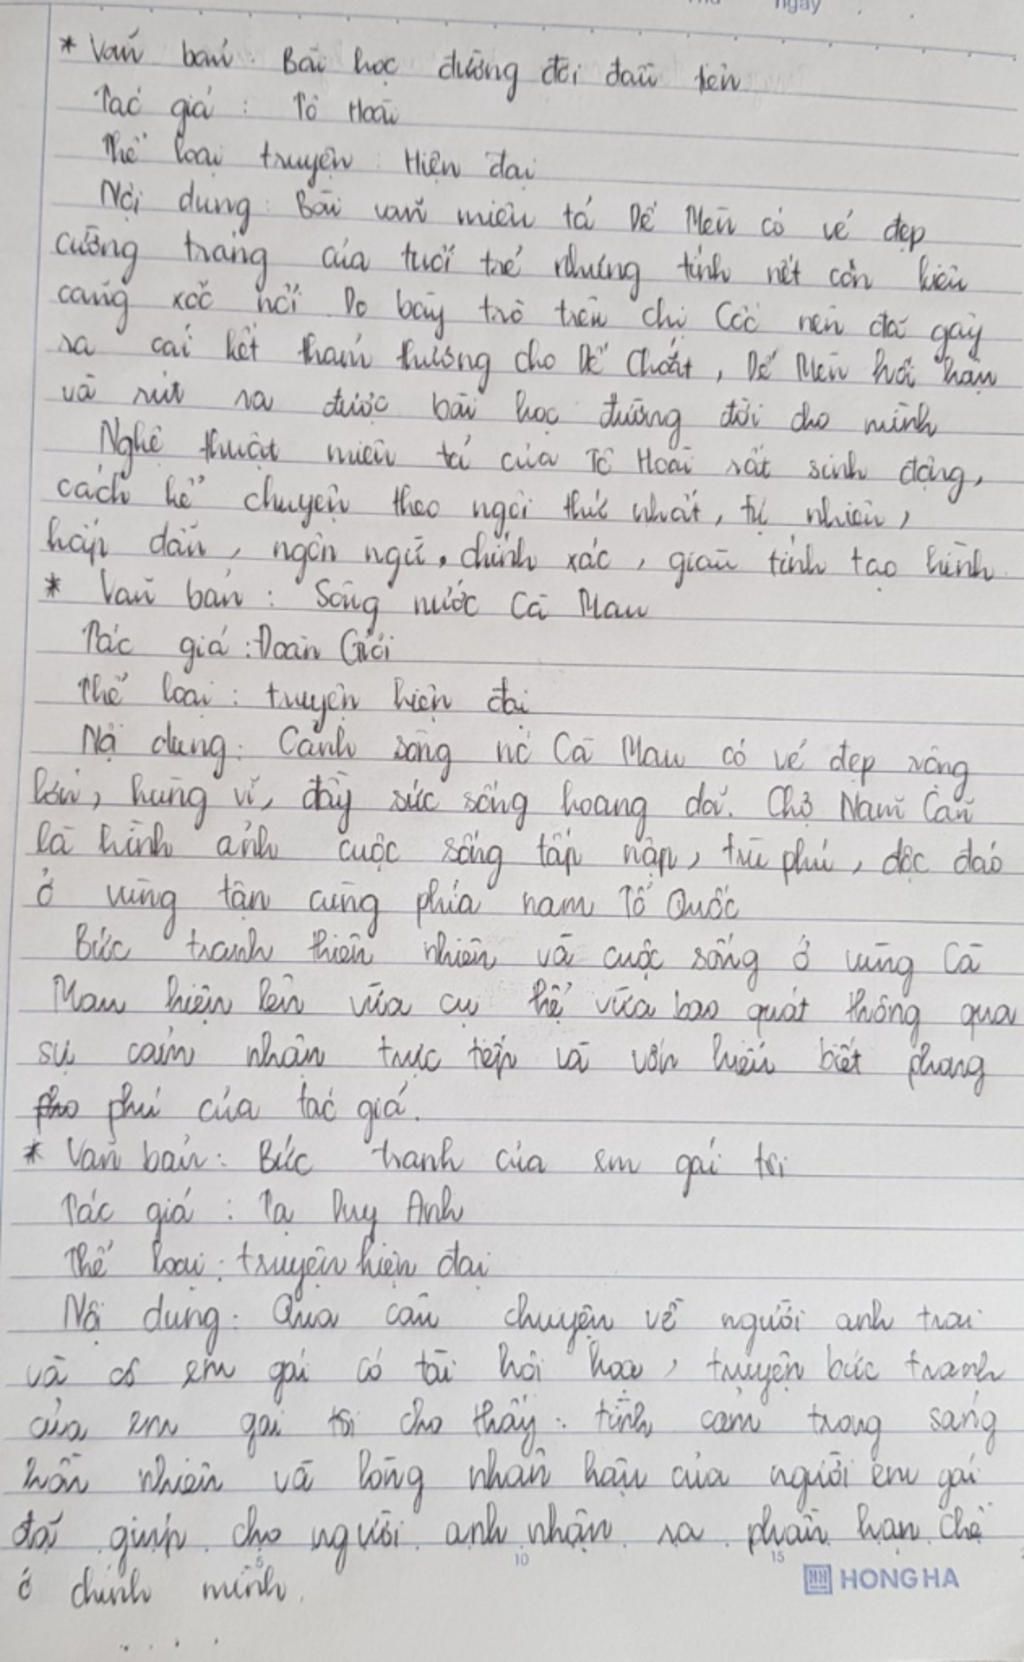 ngày
* Văn bản: Bài học đường đời đầu tiên
Tác giả: Tô Hoài
Thể loại truyện: Hiện đại
Nội dung: Bài văn miêu tả Dế Mèn có vẻ đẹp
cường tráng của tuổi trẻ nhưng tính nết còn kiêu
căng xốc nổi. Do bày trò trêu chị Cốc nên đã gây
ra cái kết thảm thương cho Dế Choắt, Dế Mèn hối hận
và rút ra được bài học đường đời cho mình
Nghệ thuật miêu tả của Tô Hoài rất sinh động,
cách kể chuyện theo ngôi thứ nhất, tự nhiên,
hấp dẫn, ngôn ngữ, chính xác, giàu tính tạo hình
* Văn bản: Sông nước Cà Mau
Tác giả: Đoàn Giỏi
Thể loại: truyện hiện đại
Nội dung: Cảnh sông nc Cà Mau có vẻ đẹp rộng
lớn, hùng vĩ, đầy sức sống hoang dã. Chợ Năm Căn
là hình ảnh cuộc sống tấp nập, trù phú, độc đáo
ở vùng tận cùng phía nam Tổ Quốc
Bức tranh thiên nhiên và cuộc sống ở vùng Cà
Mau hiện lên vừa cụ thể vừa bao quát thông qua
sự cảm nhận trực tiếp và vốn hiểu biết phong
phú của tác giả.
* Văn bản: Bức tranh của em gái tôi
Tác giả: Tạ Duy Anh
Thể loại: truyện hiện đại
Nội dung: Qua câu chuyện về người anh trai
và cô em gái có tài hội họa, truyện bức tranh
của em gái tôi cho thấy: tình cảm trong sáng
hồn nhiên và lòng nhân hậu của người em gái
đã giúp cho người anh nhận ra phần hạn chế
ở chính mình.
5 10 15 HONG HA